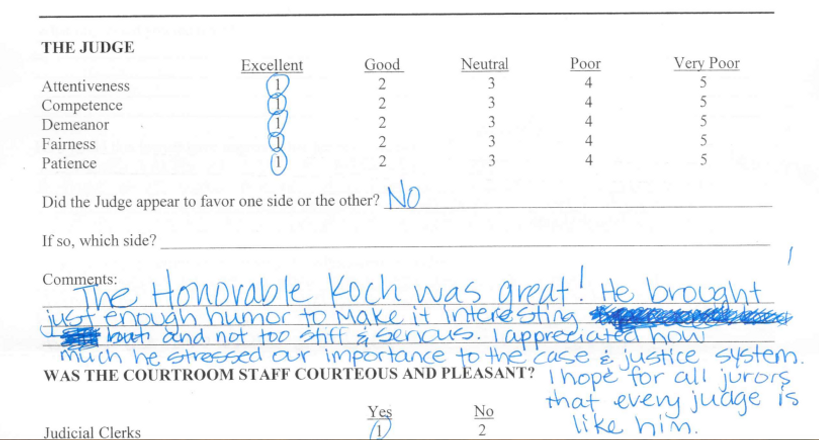 THE JUDGE
Excellent Good Neutral Poor Very Poor
Attentiveness 1 2 3 4 5
Competence 1 2 3 4 5
Demeanor 1 2 3 4 5
Fairness 1 2 3 4 5
Patience 1 2 3 4 5
Did the Judge appear to favor one side or the other? NO
If so, which side?
Comments:
The Honorable Koch was great! He brought
just enough humor to make it interesting
but and not too stiff & serious. I appreciated how
much he stressed our importance to the case & justice system.
WAS THE COURTROOM STAFF COURTEOUS AND PLEASANT? I hope for all jurors
that every judge is
like him.
Yes No
Judicial Clerks 1 2